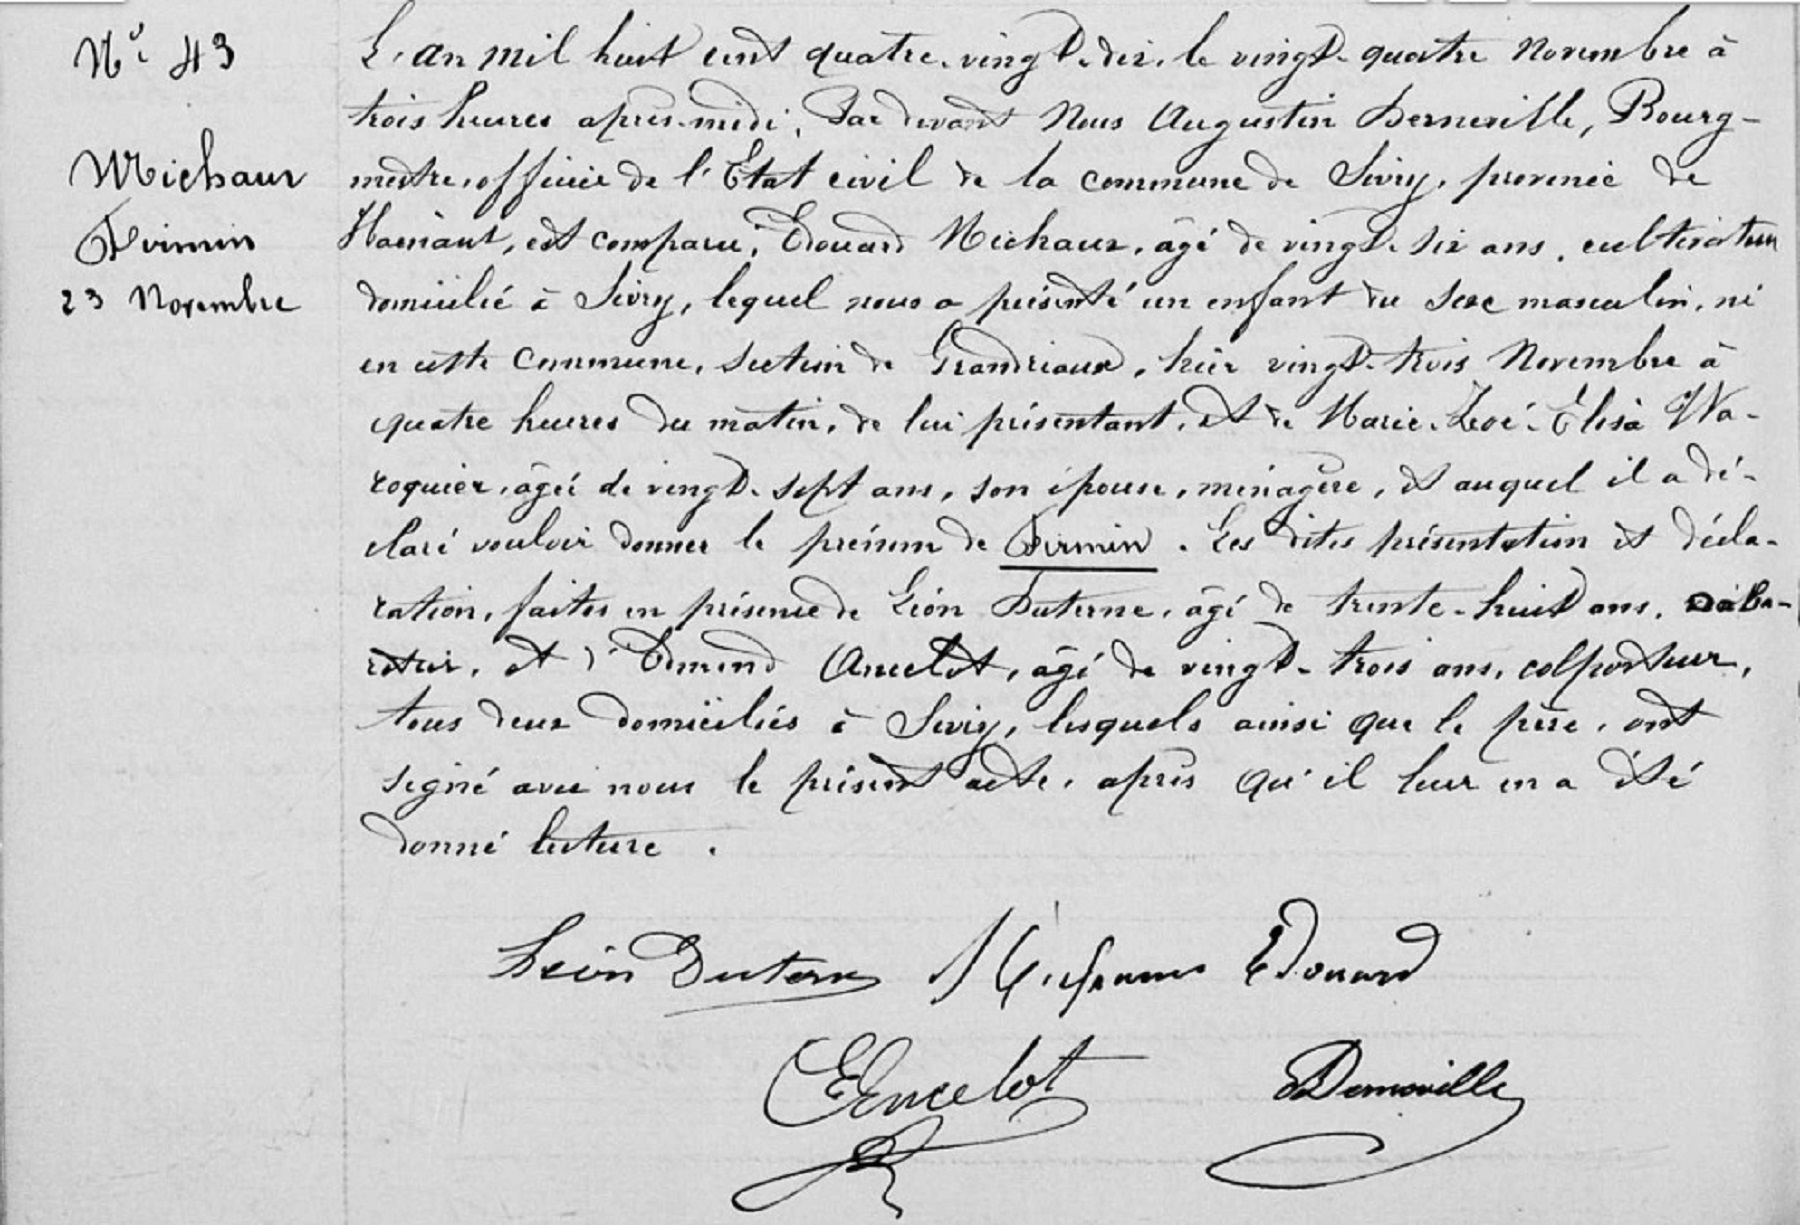 N° 43
Michaux
Firmin
23 Novembre
L'an mil huit cent quatre-vingt-dix, le vingt-quatre Novembre à
trois heures après-midi, Par devant Nous Augustin Derneville, Bourg-
mestre, officier de l'Etat civil de la commune de Sivry, province de
Hainaut, est comparu, Edouard Michaux, âgé de vingt-six ans, cultivateur
domicilié à Sivry, lequel nous a présenté un enfant du sexe masculin, né
en cette Commune, section de Grandrieux, hier vingt-trois Novembre à
quatre heures du matin, de lui présentant, et de Marie-Zoé-Elisa Wa-
roquier, âgée de vingt-sept ans, son épouse, ménagère, et auquel il a dé-
claré vouloir donner le prénom de Firmin. Les dites présentation et décla-
ration, faites en présence de Léon Duterne, âgé de trente-huit ans, caba-
retier, et d'Edmond Ancelot, âgé de vingt-trois ans, colporteur,
tous deux domiciliés à Sivry, lesquels ainsi que le père, ont
signé avec nous le présent acte, après qu'il leur en a été
donné lecture.
Léon Duterne Michaux Edouard
EAncelot Derneville